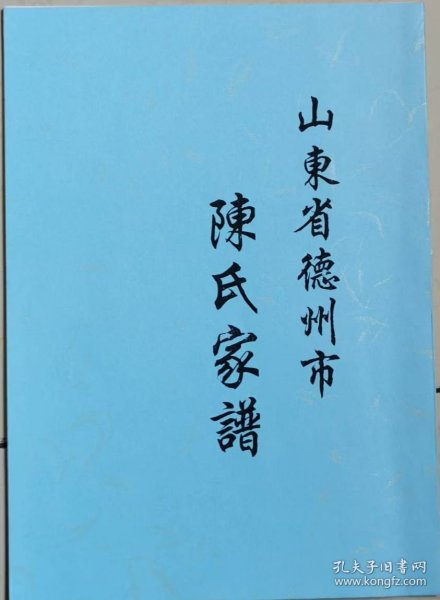 山東省德州市
陳氏家譜
孔夫子旧书网
www.kongfz.com